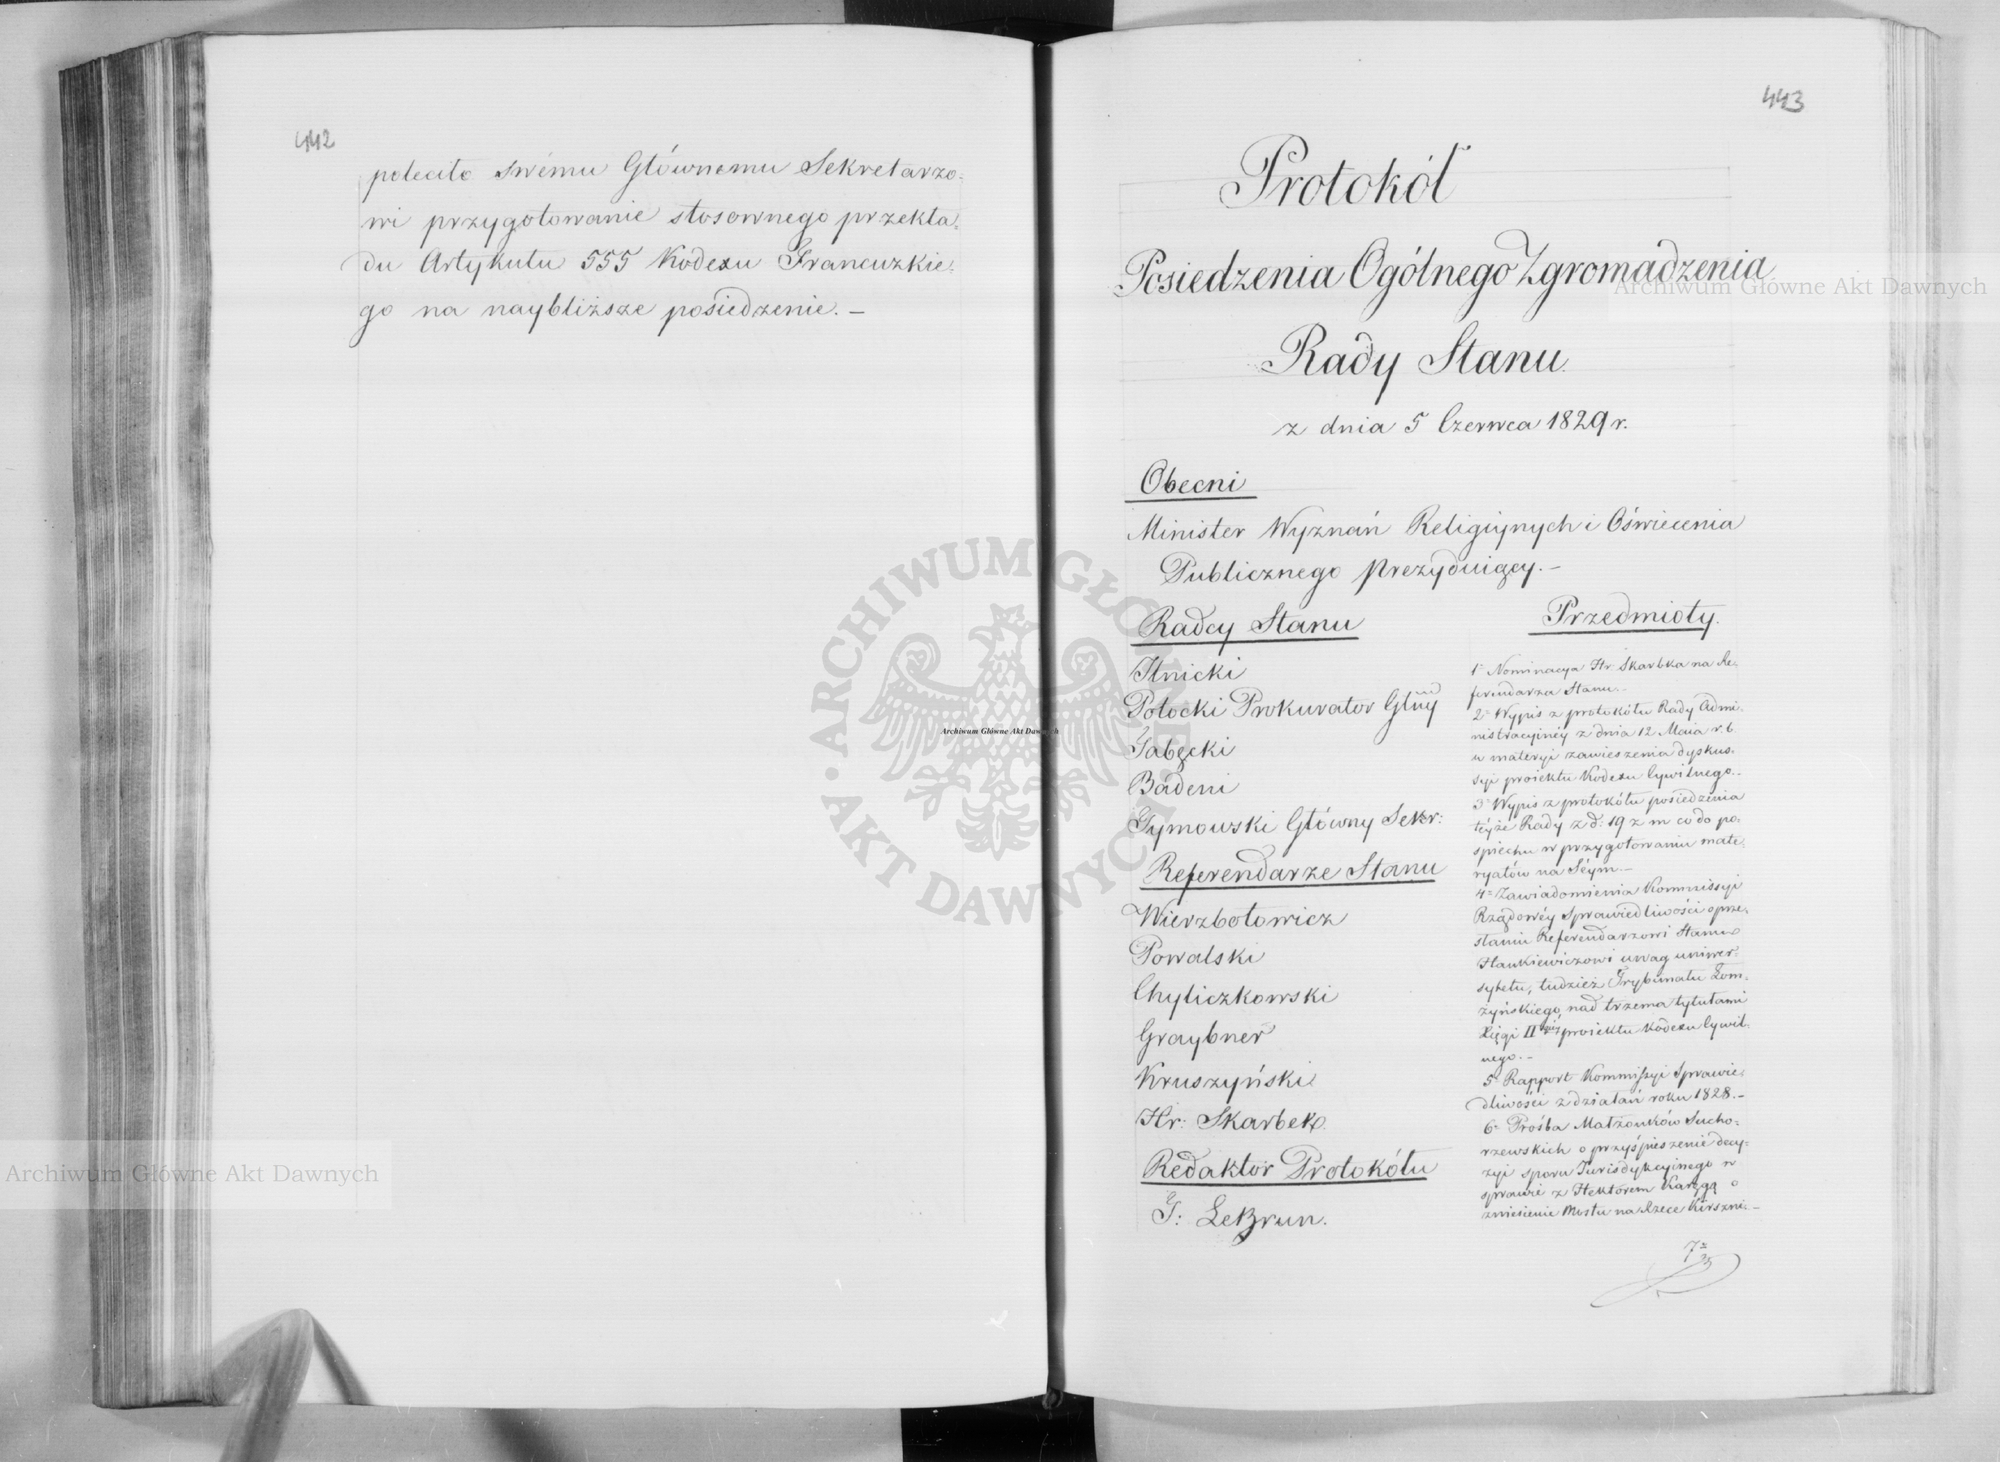 442
poleciło swému Głównemu Sekretarzo=
wi przygotowanie stosownego przekła=
du Artykułu 555 Kodexu Francuzkie=
go na naybliższe posiedzenie. —
443
Protokół
Posiedzenia Ogólnego Zgromadzenia
Rady Stanu
z dnia 5 Czerwca 1829 r.
Obecni
Minister Wyznań Religijnych i Oświecenia
Publicznego Prezyduiący. —
Radcy Stanu
Ilnicki
Potocki Prokurator Głny
Gałęcki
Badeni
Tymowski Główny Sekr:
Referendarze Stanu
Wierzbołowicz
Powalski
Chyliczkowski
Graybner
Kruszyński
Hr: Skarbek
Redaktor Protokółu
G: LeBrun.
Przedmioty.
1= Nominacya Hr: Skarbka na Re=
ferendarza Stanu. —
2= Wypis z protokółu Rady Admi=
nistracyiney z dnia 12 Maia r. b.
w materyi zawieszenia dyskus=
syi proiektu Kodexu Cywilnego. —
3= Wypis z protokółu posiedzenia
téyże Rady z d: 19 z m co do po=
spiechu w przygotowaniu mate=
ryałów na Séym. —
4= Zawiadomienia Kommissyi
Rządowéy Sprawiedliwości o prze=
słaniu Referendarzowi Stanu
Hankiewiczowi uwag uniwer=
sytetu, tudzież Trybunału Łom=
żyńskiego nad trzema tytułami
Xięgi II giéy proiektu Kodexu Cywil=
nego. —
5= Rapport Kommissyi Sprawie=
dliwości z działań roku 1828. —
6= Prośba Małżonków Sucho=
rzewskich o przyśpieszenie decy=
zyi sporu Jurisdykcyinego w
sprawie z Hektorem Karęgą o
zniesienie Mostu na Rzece Kirsznie. —
7=
Archiwum Główne Akt Dawnych
Archiwum Główne Akt Dawnych
Archiwum Główne Akt Dawnych
ARCHIWUM GŁÓWNE · AKT DAWNYCH ·